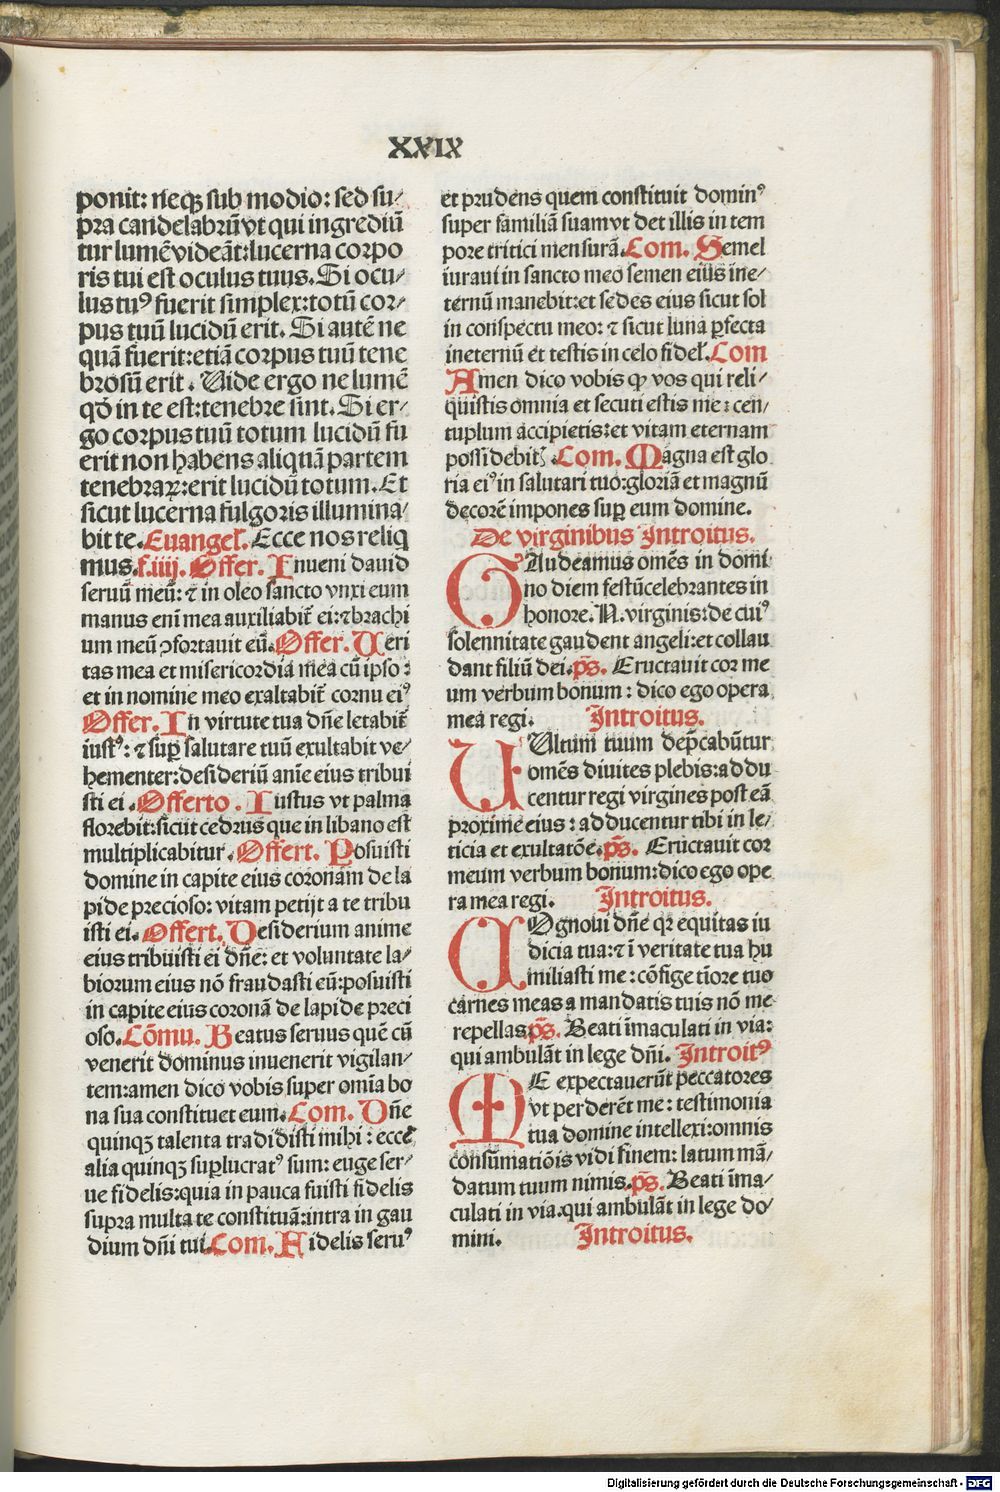 XXIX
ponit: neqꝫ sub modio: sed su⸗
pra candelabrū vt qui ingrediū
tur lumē videāt: lucerna corpo
ris tui est oculus tuus. Si ocu⸗
lus tuꝰ fuerit simplex: totū cor⸗
pus tuū lucidū erit. Si autē ne
quā fuerit: etiā corpus tuū tene
brosū erit. Vide ergo ne lumē
qđ in te est: tenebre sint. Si er⸗
go corpus tuū totum lucidū fu
erit non habens aliquā partem
tenebraꝝ: erit lucidū totum. Et
sicut lucerna fulgoris illumina⸗
bit te. Euangeł. Ecce nos reliq
mus. f.iiij. Offer. Inueni dauid
seruū meū: ⁊ in oleo sancto vnxi eum
manus enī mea auxiliabit̄ ei: ⁊ brachi
um meū ꝯfortauit eū. Offer. Ueri
tas mea et misericordia mea cū ipso:
et in nomine meo exaltabit̄ cornu eiꝰ
Offer. In virtute tua dn̄e letabit̄
iustꝰ: ⁊ suꝑ salutare tuū exultabit ve⸗
hementer: desideriū anīe eius tribui
sti ei. Offerto. Iustus vt palma
florebit: sicut cedrus que in libano est
multiplicabitur. Offert. Posuisti
domine in capite eius coronam de la
pide precioso: vitam petijt a te tribu
isti ei. Offert. Desiderium anime
eius tribuisti ei dn̄e: et voluntate la⸗
biorum eius nō fraudasti eū: posuisti
in capite eius coronā de lapide preci
oso. Cōmu. Beatus seruus quē cū
venerit dominus inuenerit vigilan⸗
tem: amen dico vobis super omīa bo
na sua constituet eum. Com. Dn̄e
quinqꝫ talenta tradidisti mihi: ecce
alia quinqꝫ suꝑlucratꝰ sum: euge ser⸗
ue fidelis: quia in pauca fuisti fidelis
supra multa te constituā: intra in gau
dium dn̄i tui. Com. Fidelis seruꝰ
et prudens quem constituit dominꝰ
super familiā suam vt det illis in tem
pore tritici mensurā. Com. Semel
iuraui in sancto meo semen eius ine⸗
ternū manebit: et sedes eius sicut sol
in conspectu meo: ⁊ sicut luna ꝑfecta
ineternū et testis in celo fideł. Com
Amen dico vobis ꝙ vos qui reli⸗
quistis omnia et secuti estis me: cen⸗
tuplum accipietis: et vitam eternam
possidebitꝭ. Com. Magna est glo
ria eiꝰ in salutari tuo: gloriā et magnū
decorē impones suꝑ eum domine.
De virginibus Introitus.
GAudeamus omēs in domi
no diem festū celebrantes in
honore. N. virginis: de cuiꝰ
solennitate gaudent angeli: et collau
dant filiū dei. p̄s. Eructauit cor me
um verbum bonum: dico ego opera
mea regi. Introitus.
UUltum tuum deꝑcabūtur
omēs diuites plebis: addu
centur regi virgines post eā
proxime eius: adducentur tibi in le⸗
ticia et exultatōe. p̄s. Eructauit cor
meum verbum bonum: dico ego ope
ra mea regi. Introitus.
COgnoui dn̄e qꝛ equitas iu
dicia tua: ⁊ ī veritate tua hu
miliasti me: cōfige tīore tuo
carnes meas a mandatis tuis nō me
repellas p̄s. Beati īmaculati in via:
qui ambulāt in lege dn̄i. Introitꝰ
ME expectauerūt peccatores
vt perderēt me: testimonia
tua domine intellexi: omnis
consūmatiōis vidi finem: latum mā⸗
datum tuum nimis. p̄s. Beati īma⸗
culati in via. qui ambulāt in lege do⸗
mini. Introitus.
Digitalisierung gefördert durch die Deutsche Forschungsgemeinschaft - DFG